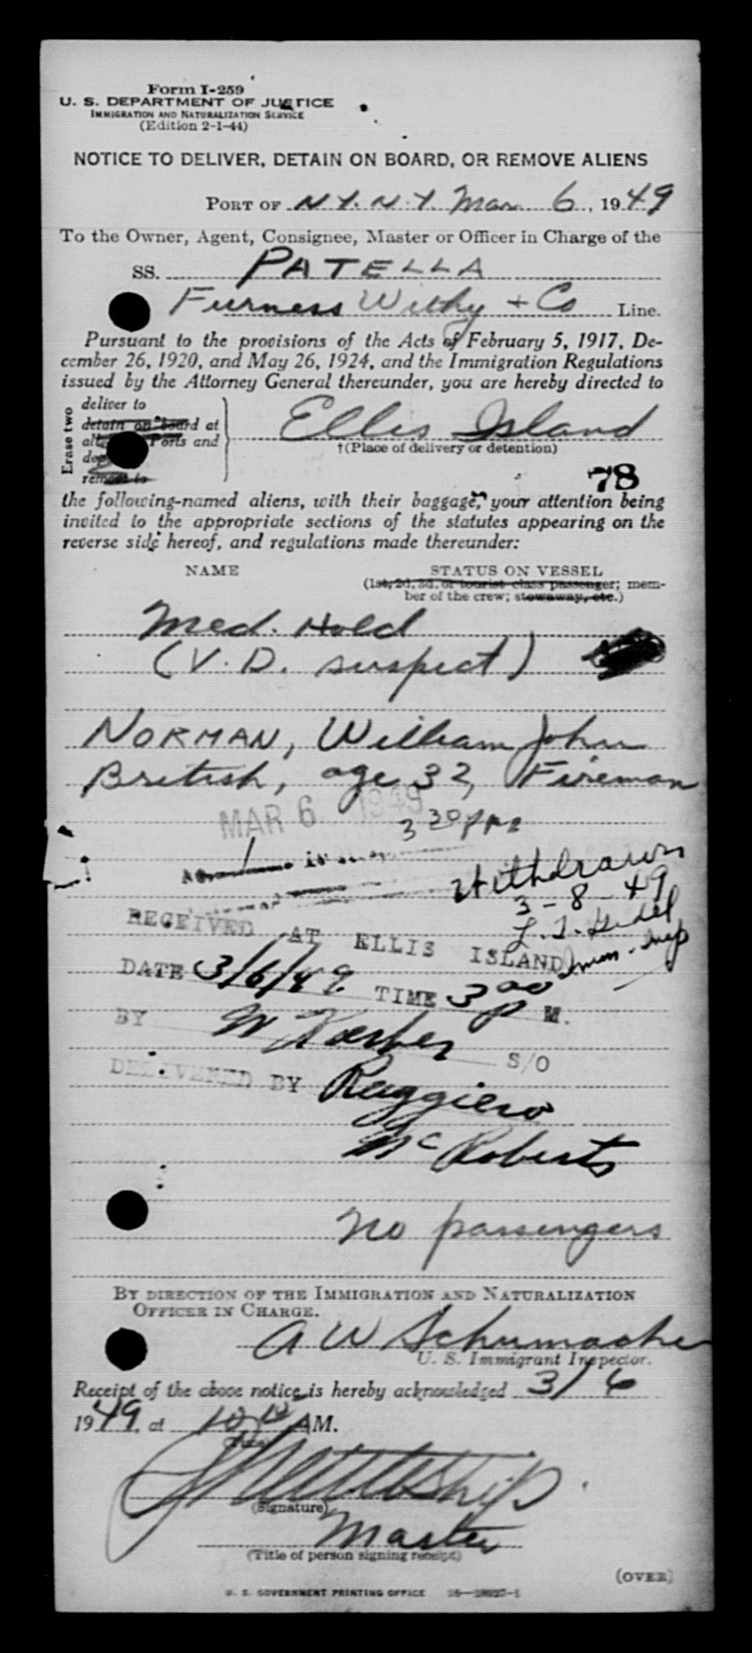 Form I-259
U. S. DEPARTMENT OF JUSTICE
IMMIGRATION AND NATURALIZATION SERVICE
(Edition 2-1-44)
NOTICE TO DELIVER, DETAIN ON BOARD, OR REMOVE ALIENS
PORT OF N.Y. N.Y. Mar. 6, 1949
To the Owner, Agent, Consignee, Master or Officer in Charge of the
SS. PATELLA
Furness Withy + Co Line.
Pursuant to the provisions of the Acts of February 5, 1917, De-
cember 26, 1920, and May 26, 1924, and the Immigration Regulations
issued by the Attorney General thereunder, you are hereby directed to
Erase two
deliver to
detain on board at
Ports and
remove to
Ellis Island
†(Place of delivery or detention)
78
the following-named aliens, with their baggage, your attention being
invited to the appropriate sections of the statutes appearing on the
reverse side hereof, and regulations made thereunder:
NAME STATUS ON VESSEL
(1st, 2d, 3d, or tourist class passenger; mem-
ber of the crew; stowaway, etc.)
Med. Hold
(V. D. suspect)
NORMAN, William John
British, age 32, Fireman
MAR 6 1949
3 30 pm
Withdrawn
3-8-49
RECEIVED AT ELLIS ISLAND
DATE 3/6/49. TIME 3 00 P M.
BY S/O
DELIVERED BY Ruggiero
McRoberts
No passengers
BY DIRECTION OF THE IMMIGRATION AND NATURALIZATION
OFFICER IN CHARGE.
A W Schumacher
U. S. Immigrant Inspector.
Receipt of the above notice is hereby acknowledged 3/6
1949, at 10 10 AM.
(Signature)
Master
(Title of person signing receipt)
(OVER)
U. S. GOVERNMENT PRINTING OFFICE